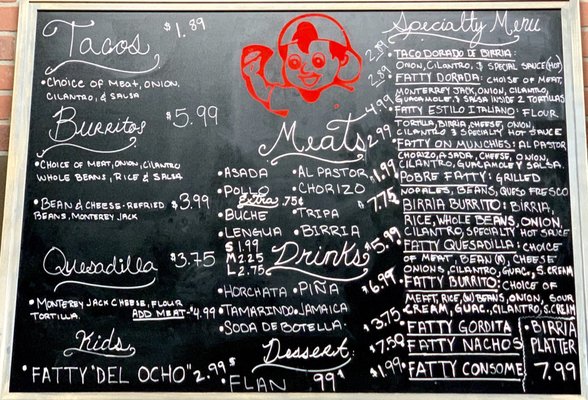 Tacos $1.89
• Choice of Meat, Onion,
Cilantro, & Salsa
Burritos $5.99
• Choice of Meat, Onion, Cilantro
Whole Beans, Rice & Salsa
• Bean & Cheese - Refried $3.99
Beans, Monterey Jack
Quesadilla $3.75
• Monterey Jack Cheese, Flour
Tortilla. Add Meat - $4.99
Kids
• Fatty "Del Ocho" 2.99$
Meats
• Asada • Al Pastor
• Pollo • Chorizo
Extra .75¢
• Buche • Tripa
• Lengua • Birria
S 1.99
M 2.25
L 2.75
Drinks
• Horchata • Piña
• Tamarindo • Jamaica
• Soda de Botella •
Dessert
• Flan 99¢
Specialty Menu
2.89 • Taco Dorado de Birria:
Onion, Cilantro, & Special Sauce (Hot)
2.89 • Fatty Dorada: Choise of Meat,
Monterrey Jack, Onion, Cilantro,
Guacamole, & Salsa Inside 2 Tortillas
4.99 • Fatty Estilo Italiano: Flour
Tortilla, Birria, Cheese, Onion,
Cilantro & Specialty Hot Sauce
2.99 • Fatty on Munchies: Al Pastor
Chorizo, Asada, Cheese, Onion,
Cilantro, Guacamole y Salsa.
$1.99 • Pobre Fatty: Grilled
Nopales, Beans, Queso Fresco
7.75 • Birria Burrito: Birria,
Rice, Whole Beans, Onion,
Cilantro, Specialty Hot Sauce
$5.99 • Fatty Quesadilla: Choice
of Meat, Bean (R), Cheese
Onions, Cilantro, Guac, S. Cream
$6.99 • Fatty Burrito: Choice of
Meat, Rice, (W) Beans, Onion, Sour
Cream, Guac, Cilantro, S. Cream
$3.75 • Fatty Gordita
$7.50 • Fatty Nachos
$1.99 • Fatty Consome
• Birria
Platter
7.99